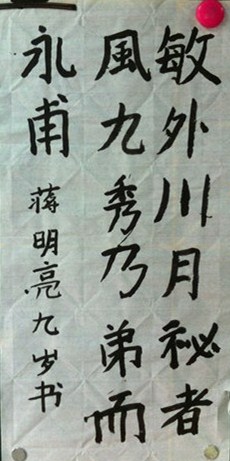 敏外川月祕者
風九秀乃弟而
永甫
蒋明亮九岁书